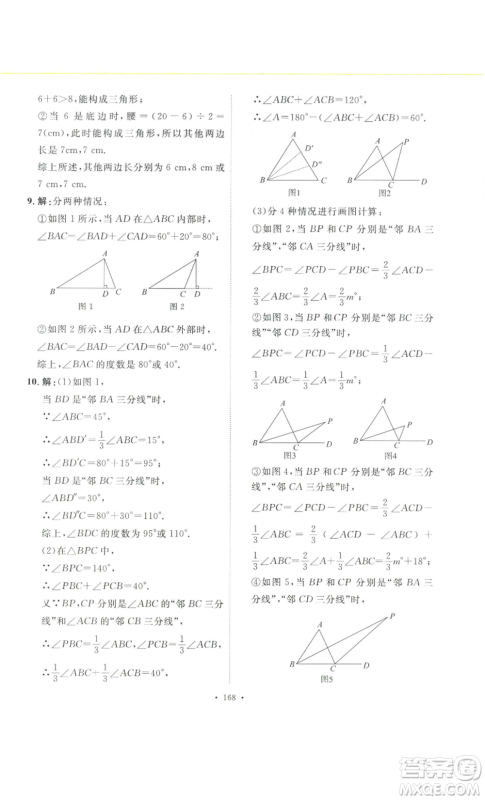 6+6>8,能构成三角形;
②当 6 是底边时,腰=(20-6)÷2=
7(cm),此时能构成三角形,所以其他两边
长是7 cm,7 cm.
综上所述,其他两边长分别为 6 cm,8 cm 或
7 cm,7 cm.
9.解:分两种情况:
①如图 1 所示,当 AD 在△ABC 内部时,
∠BAC=∠BAD+∠CAD=60°+20°=80°;
A
B D C
图 1
A
B C D
图 2
②如图 2 所示,当 AD 在△ABC 外部时,
∠BAC=∠BAD-∠CAD=60°-20°=40°.
综上,∠BAC 的度数为 80°或 40°.
10.解:(1)如图 1,
当 BD 是“邻 BA 三分线”时,
∵∠ABC=45°,
∴∠ABD′=1/3∠ABC=15°,
∴∠BD′C=80°+15°=95°;
当 BD 是“邻 BC 三分线”时,
∠ABD″=30°,
∴∠BD″C=80°+30°=110°.
综上,∠BDC 的度数为 95°或 110°.
(2)在△BPC 中,
∵∠BPC=140°,
∴∠PBC+∠PCB=40°.
又∵BP,CP 分别是∠ABC 的“邻 BC 三分
线”和∠ACB 的“邻 BC 三分线”,
∴∠PBC=1/3∠ABC,∠PCB=1/3∠ACB,
∴1/3∠ABC+1/3∠ACB=40°,
∴∠ABC+∠ACB=120°,
∴∠A=180°-120°=60°.
A
D′
D″
B C
图1
A P
B C D
图2
(3)分 4 种情况进行画图计算:
①如图 2,当 BP 和 CP 分别是“邻 BA 三
分线”、“邻 AC 三分线”时,
∠BPC=∠PCD-∠PBC=2/3∠ACD-
2/3∠ABC=2/3∠A=2/3m°;
②如图 3,当 BP 和 CP 分别是“邻 BC 三
分线”、“邻 CD 三分线”时,
∠BPC=∠PCD-∠PBC=1/3∠ACD-
1/3∠ABC=1/3∠A=1/3m°;
A
P
B C D
图3
A
P
B C D
图4
③如图 4,当 BP 和 CP 分别是“邻 BC 三分
线”、“邻 AC 三分线”时,
∠BPC=∠PCD-∠PBC=2/3∠ACD-
1/3∠ABC=2/3(∠A+∠ABC)-
1/3∠ABC=2/3∠A+1/3∠ABC=2/3m°+18°;
④如图 5,当 BP 和 CP 分别是“邻 BA 三分
线”、“邻 CD 三分线”时,
A P
B C D
图5
· 168 ·
MXQE.COM